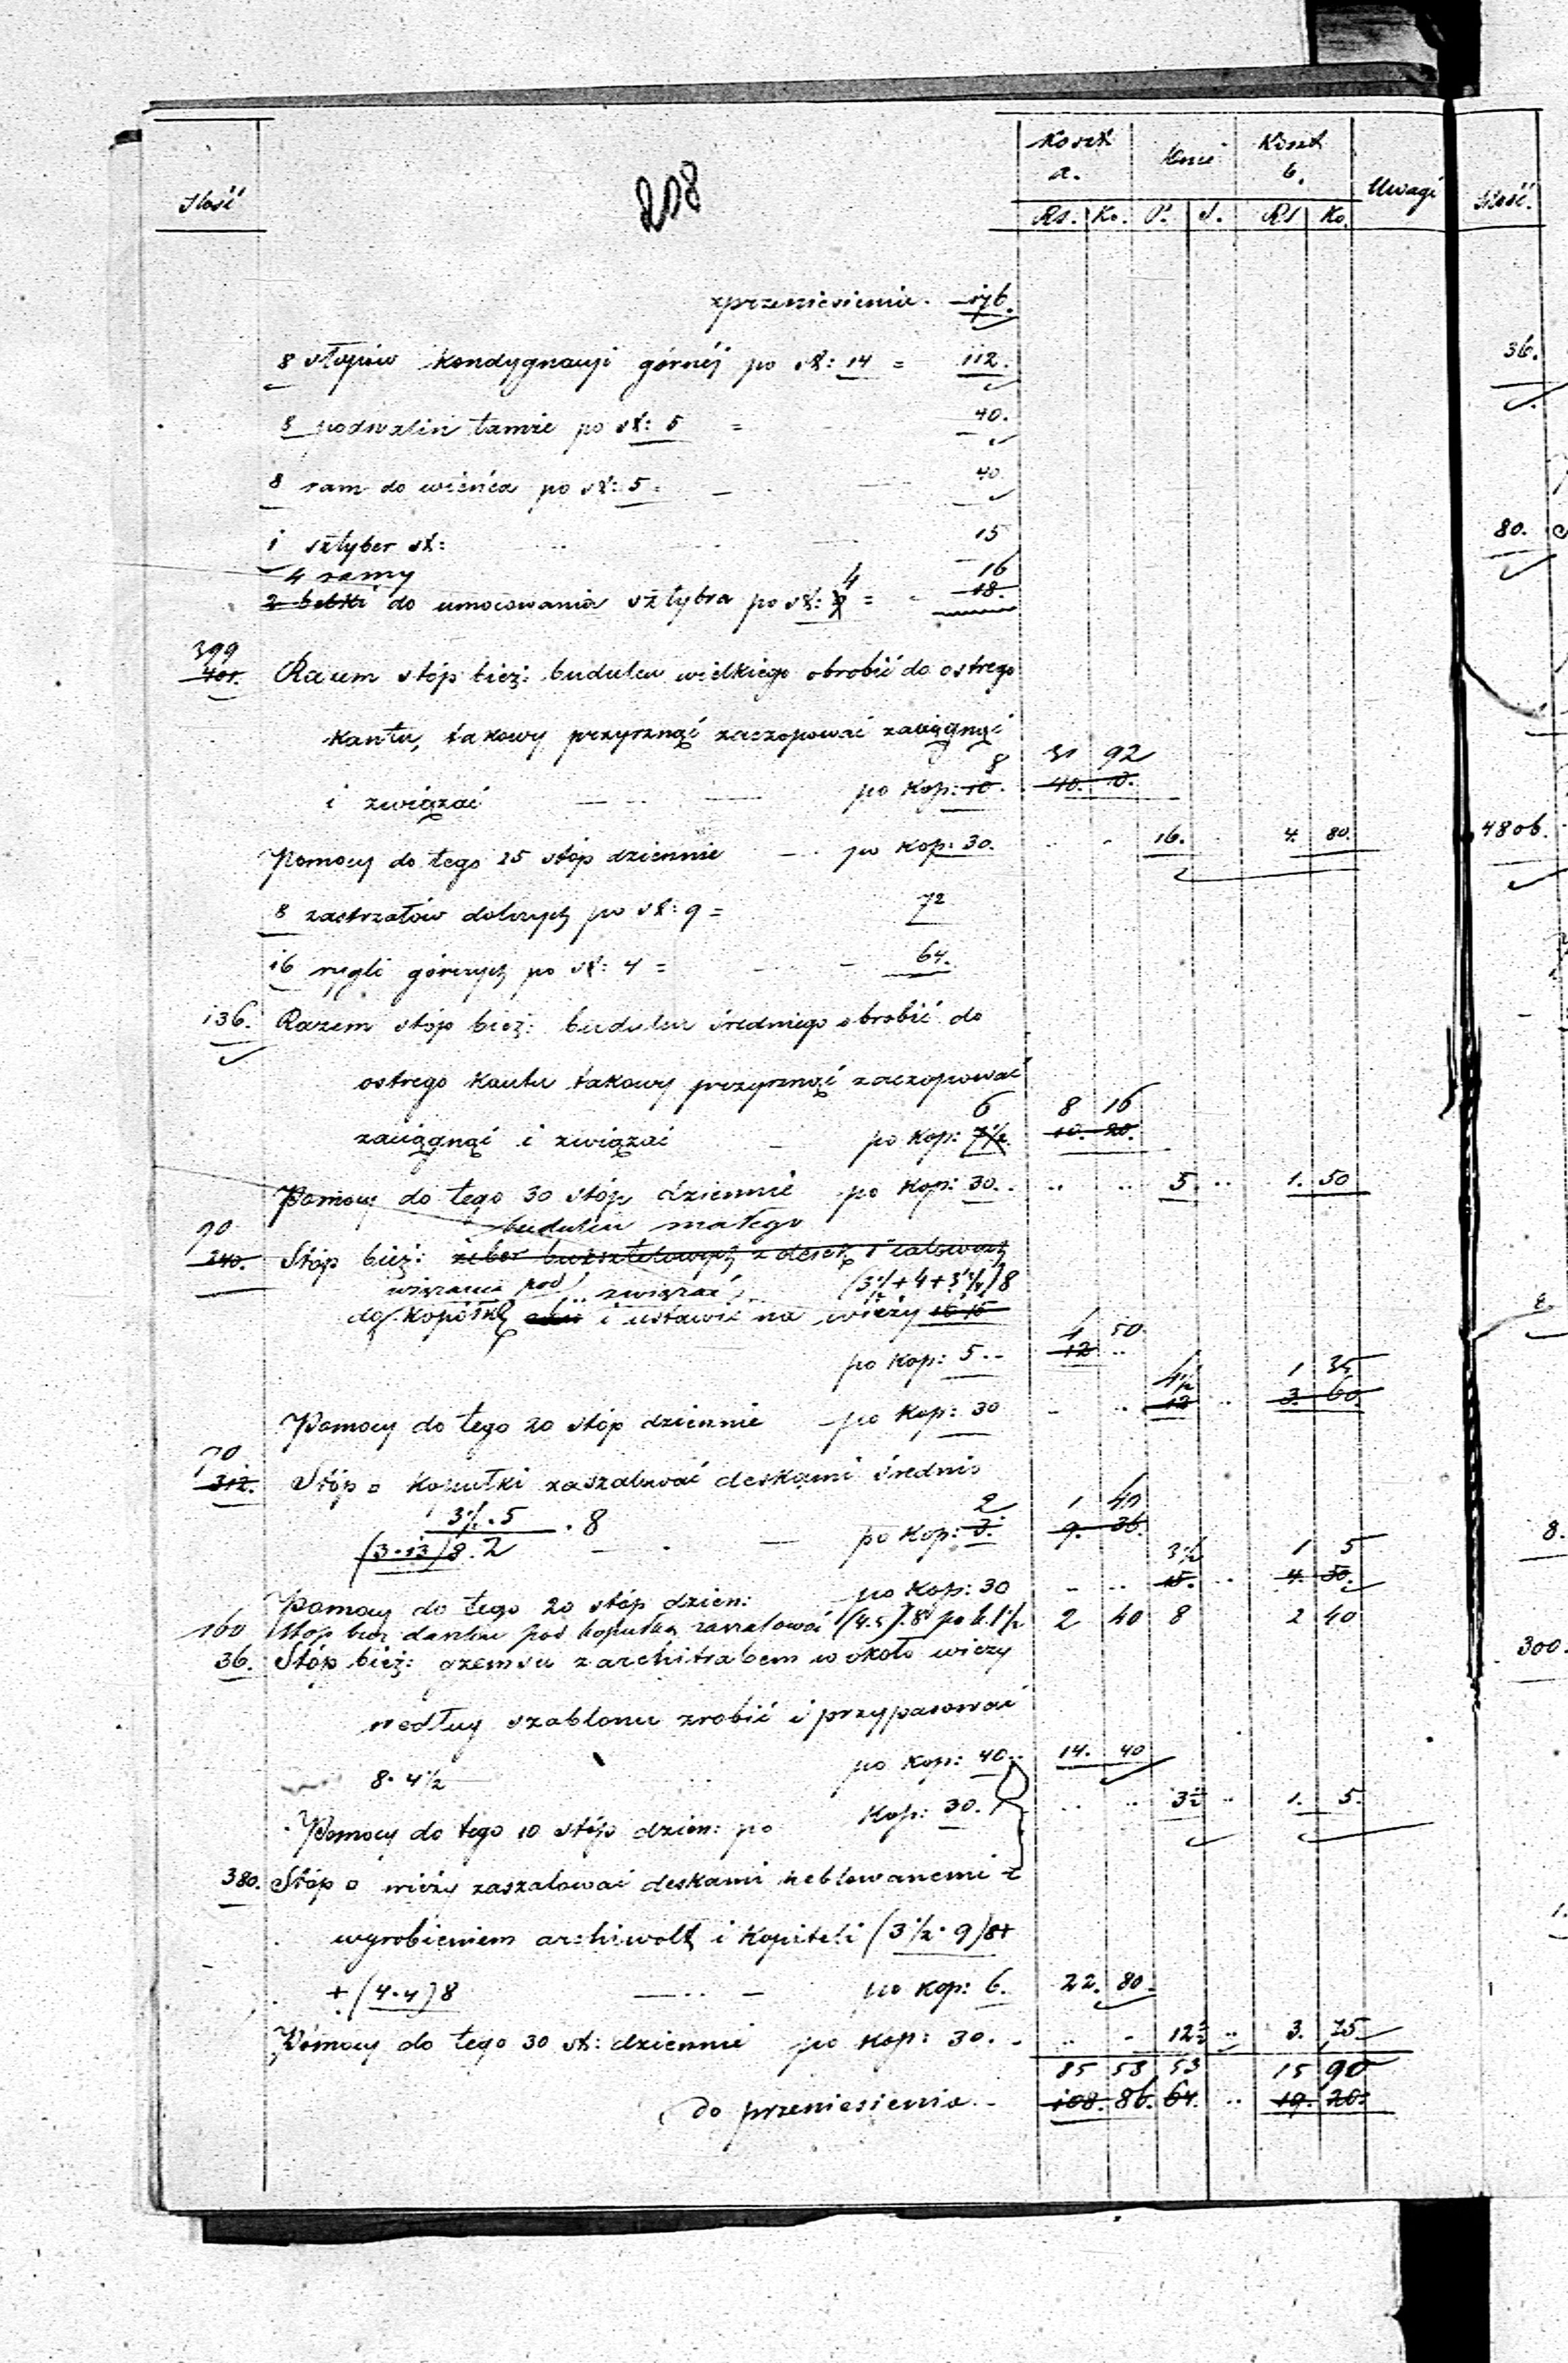 218
Ilość
Koszt a.
Konie
Koszt b.
Uwagi
Ilość.
Rs. Ko. P. d. Rs Ko.
z przeniesienia. 176.
8 słupów kondygnacji górnéj po st: 14 = 112.
8 podwalin tamże po st: 5 = 40.
8 ram do wieńca po st: 5 = 40
1 sztyber st: 15
4 ramy 4 16
2 belki do umocowania sztybra po st: 9 = 18.
399
401. Razem stóp bież: budulcu wielkiego obrobić do ostrego
kantu, takowy przyrznąć zaczopować zaciągnąć
8 31 92
i związać po Kop: 10. 40. 10.
Pomocy do tego 25 stóp dziennie po Kop: 30. 16. 4. 80.
8 zastrzałów dolnych po st: 9 = 72
16 rygli górnych po st: 4 = 64.
136. Razem stóp bież: budulcu średniego obrobić do
ostrego kantu takowy przyrznąć zaczopować
6 8 16
zaciągnąć i związać po Kop: 7½ 10. 20.
Pomocy do tego 30 stóp dziennie po Kop: 30. 5. 1. 50
90 budulcu małego
240. Stóp bież: żeber buksztelowych z desek 1 calowych
wiązania pod związać (3½+4+3½)8
do kopółki i ustawić na wieży 16 15
4 50
po Kop: 5 12
4½ 1 35
Pomocy do tego 20 stóp dziennie po Kop: 30 12 3. 60.
70
312. Stóp □ kopułki zaszalować deskami średnio
3½.5 .8 2 1 40
(3.13)8.2 po Kop: 3. 9. 36.
3½ 1 5
Pomocy do tego 20 stóp dzien: po Kop: 30 15. 4. 50.
160 Stóp bież daszku pod kopułką zaszalować (4.5).8 po k. 1½ 2 40 8 2 40
36. Stóp bież: gzemsu z architrabem w około wieży
według szablonu zrobić i przypasować
8. 4½ po Kop: 40. 14. 40
Pomocy do tego 10 stóp dzien: po Kop: 30. 3½ 1. 5.
380. Stóp □ wieży zaszalować deskami heblowanemi z
wyrobieniem archiwolt i kapiteli (3½. 9)8+
+(4.4)8 po Kop: 6. 22. 80.
Pomocy do tego 30 st: dziennie po Kop: 30. 12½ 3. 75
85 58 53 15 90
do przeniesienia. 108. 86. 64. 19. 20.
36.
80.
4806.
8.
300.